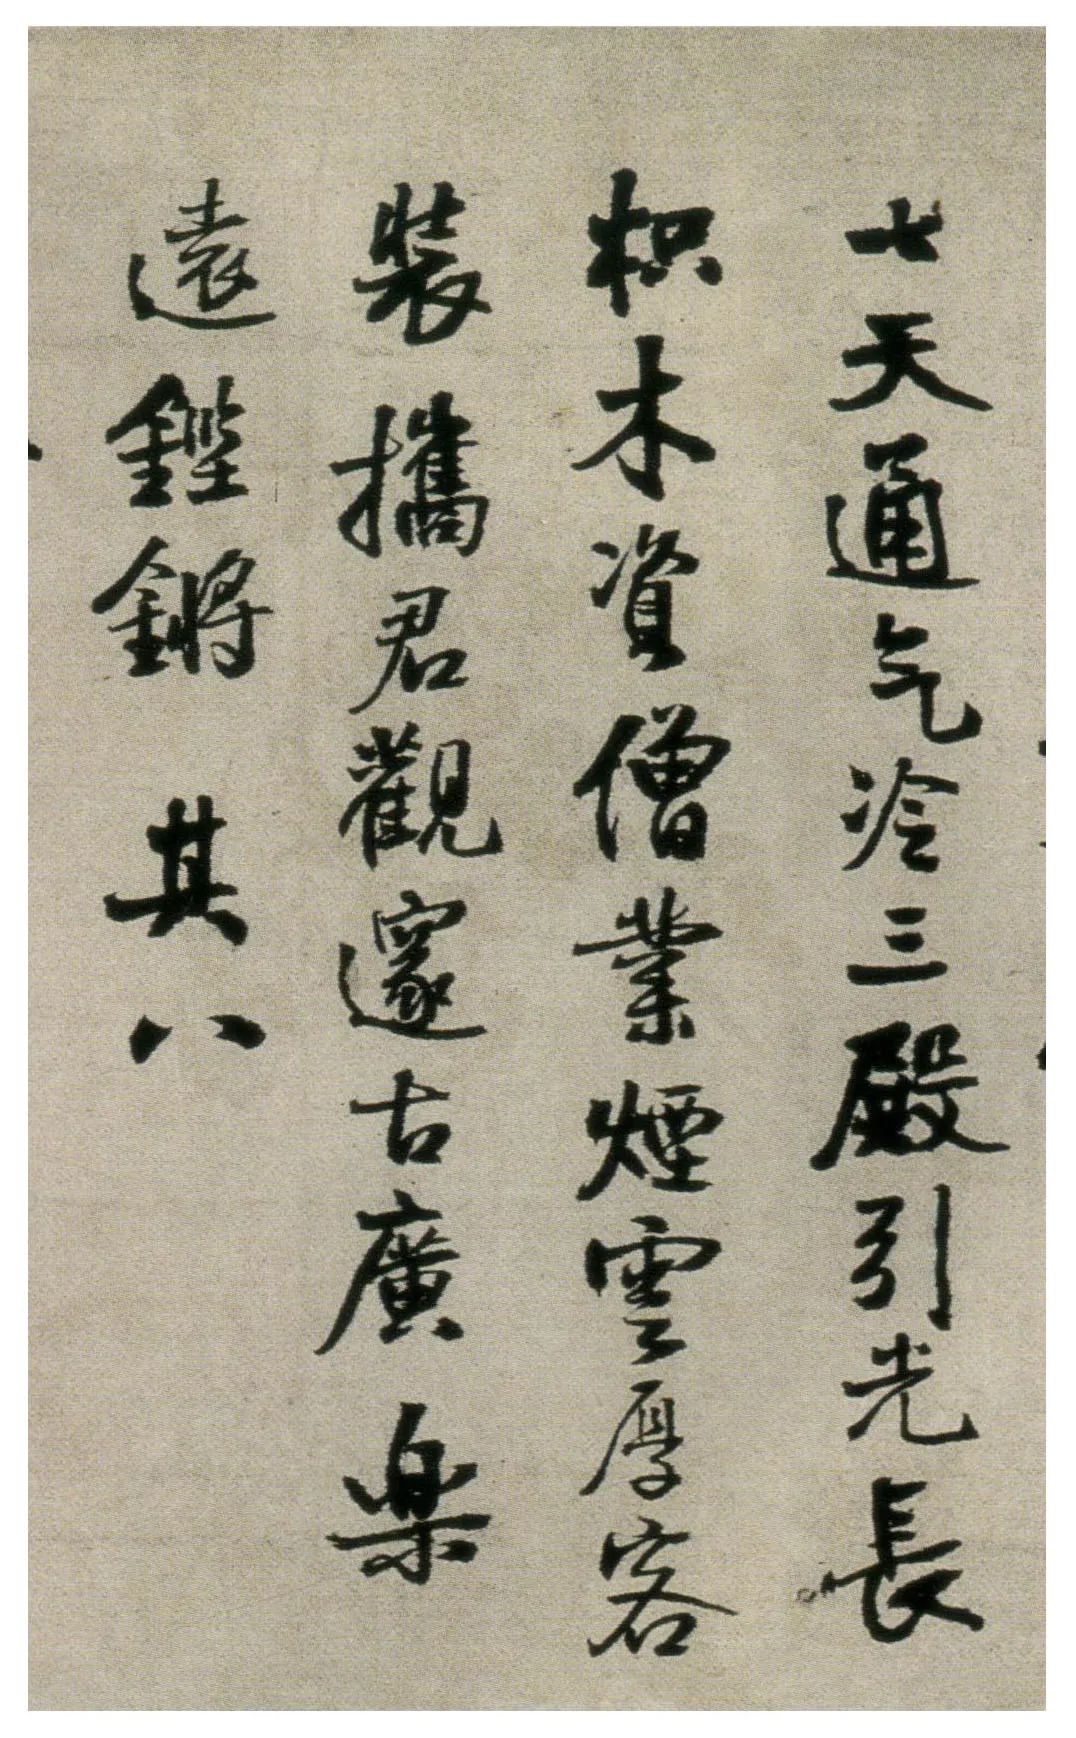 七天通气冷三殿引光長
枳木資僧業煙雲厚客
裝攜君觀邃古廣樂
遠鏗鏘 其八